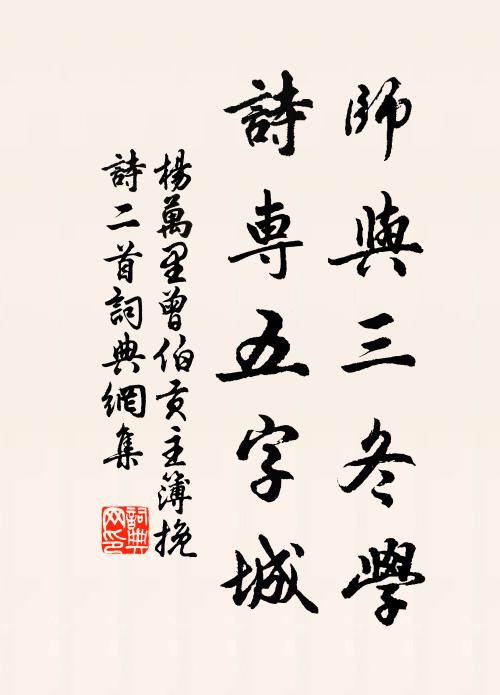 師與三冬學
詩專五字城
楊萬里曾伯貢主簿挽
詩二首詞典網集
詞典
网印